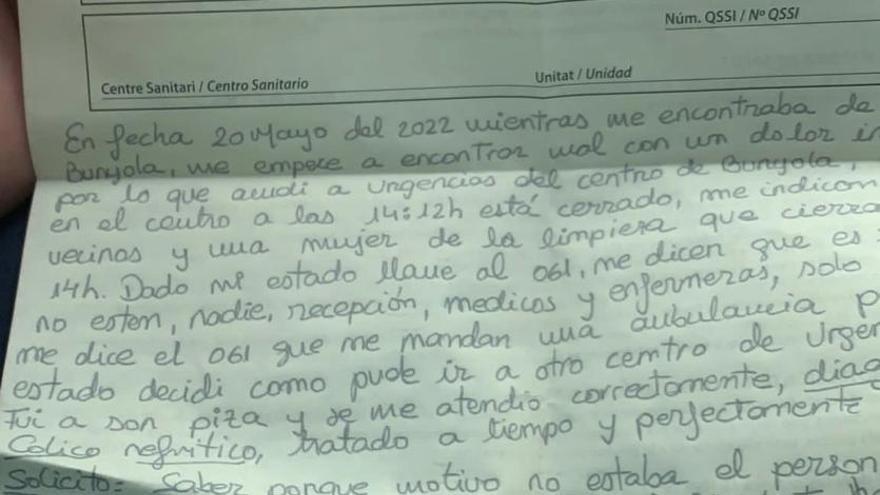 Núm. QSSI / Nº QSSI
Centre Sanitari / Centro Sanitario
Unitat / Unidad
En fecha 20 Mayo del 2022 mientras me encontraba de
Bunyola, me empece a encontrar mal con un dolor in
por lo que acudi a urgencias del centro de Bunyola,
en el centro a las 14:12h está cerrado, me indican
vecinos y una mujer de la limpieza que cierra
14h. Dado mi estado llave al 061, me dicen que es
no esten, nadie, recepción, medicos y enfermeras, solo
me dice el 061 que me mandan una aubulancia p
estado decidi como pude ir a otro centro de Urgen
Fui a son piza y se me atendio correctamente, diag
Colico nefritico, tratado a tiempo y perfectamente
Solicito: Saber porque motivo no estaba el person